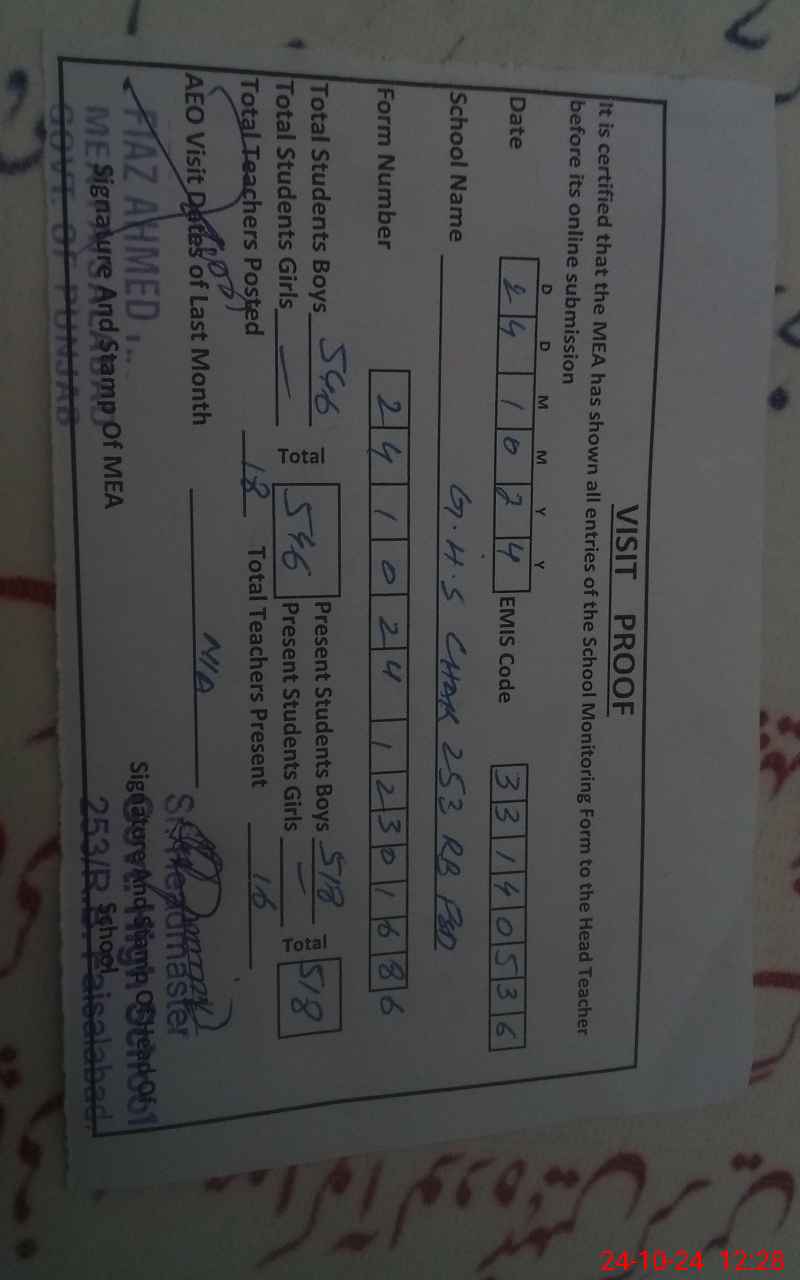 VISIT PROOF
It is certified that the MEA has shown all entries of the School Monitoring Form to the Head Teacher
before its online submission
D D M M Y Y
Date 2 4 1 0 2 4 EMIS Code 3 3 1 4 0 5 3 6
School Name G.H.S CHAK 253 RB FSD
Form Number 2 4 1 0 2 4 1 2 3 0 1 6 8 6
Total Students Boys 546 Total 546 Present Students Boys 518 Total 518
Total Students Girls — Present Students Girls —
Total Teachers Posted 18 Total Teachers Present 16
AEO Visit Dates of Last Month N/A
FIAZ AHMED
Signature And Stamp Of MEA
GOVT. OF PUNJAB
Sr. Headmaster
Signature And Stamp Of Head Of
School
253/R.B. Faisalabad.
24-10-24 12:28